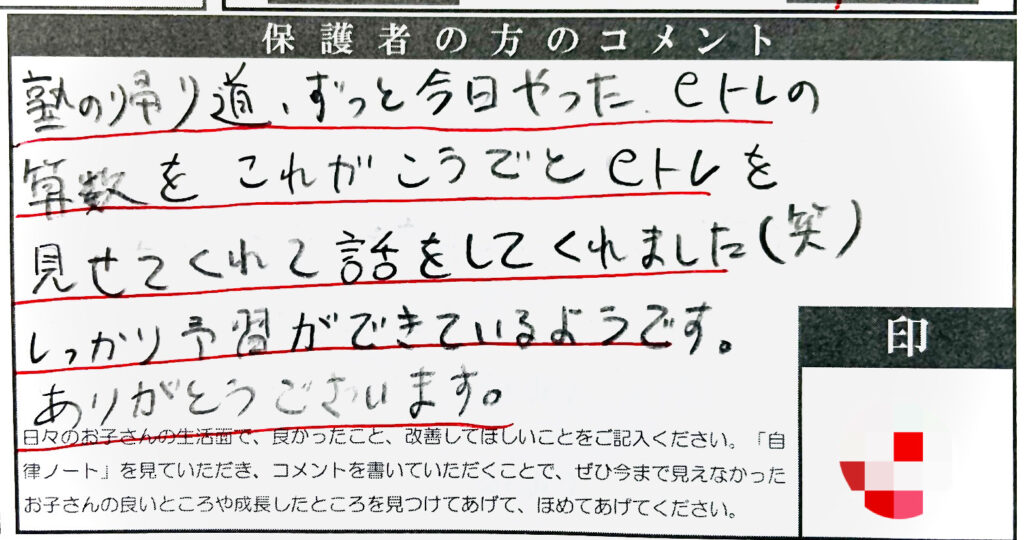 保護者の方のコメント
塾の帰り道、ずっと今日やった eトレの
算数を これが こうでと eトレを
見せてくれて 話をしてくれました(笑)
しっかり予習ができているようです。
ありがとうございます。
印
日々のお子さんの生活面で、良かったこと、改善してほしいことをご記入ください。「自
律ノート」を見ていただき、コメントを書いていただくことで、ぜひ今まで見えなかった
お子さんの良いところや成長したところを見つけてあげて、ほめてあげてください。